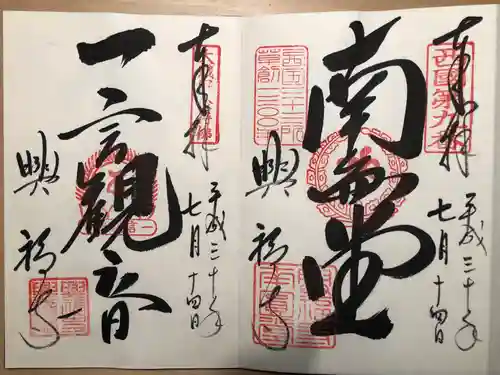 奉拝
西国第九番
平成三十年
七月十四日
南圓堂
西国三十三所
草創一三〇〇年
興福寺
奉拝
平成三十年
七月十四日
一言観音
興福寺